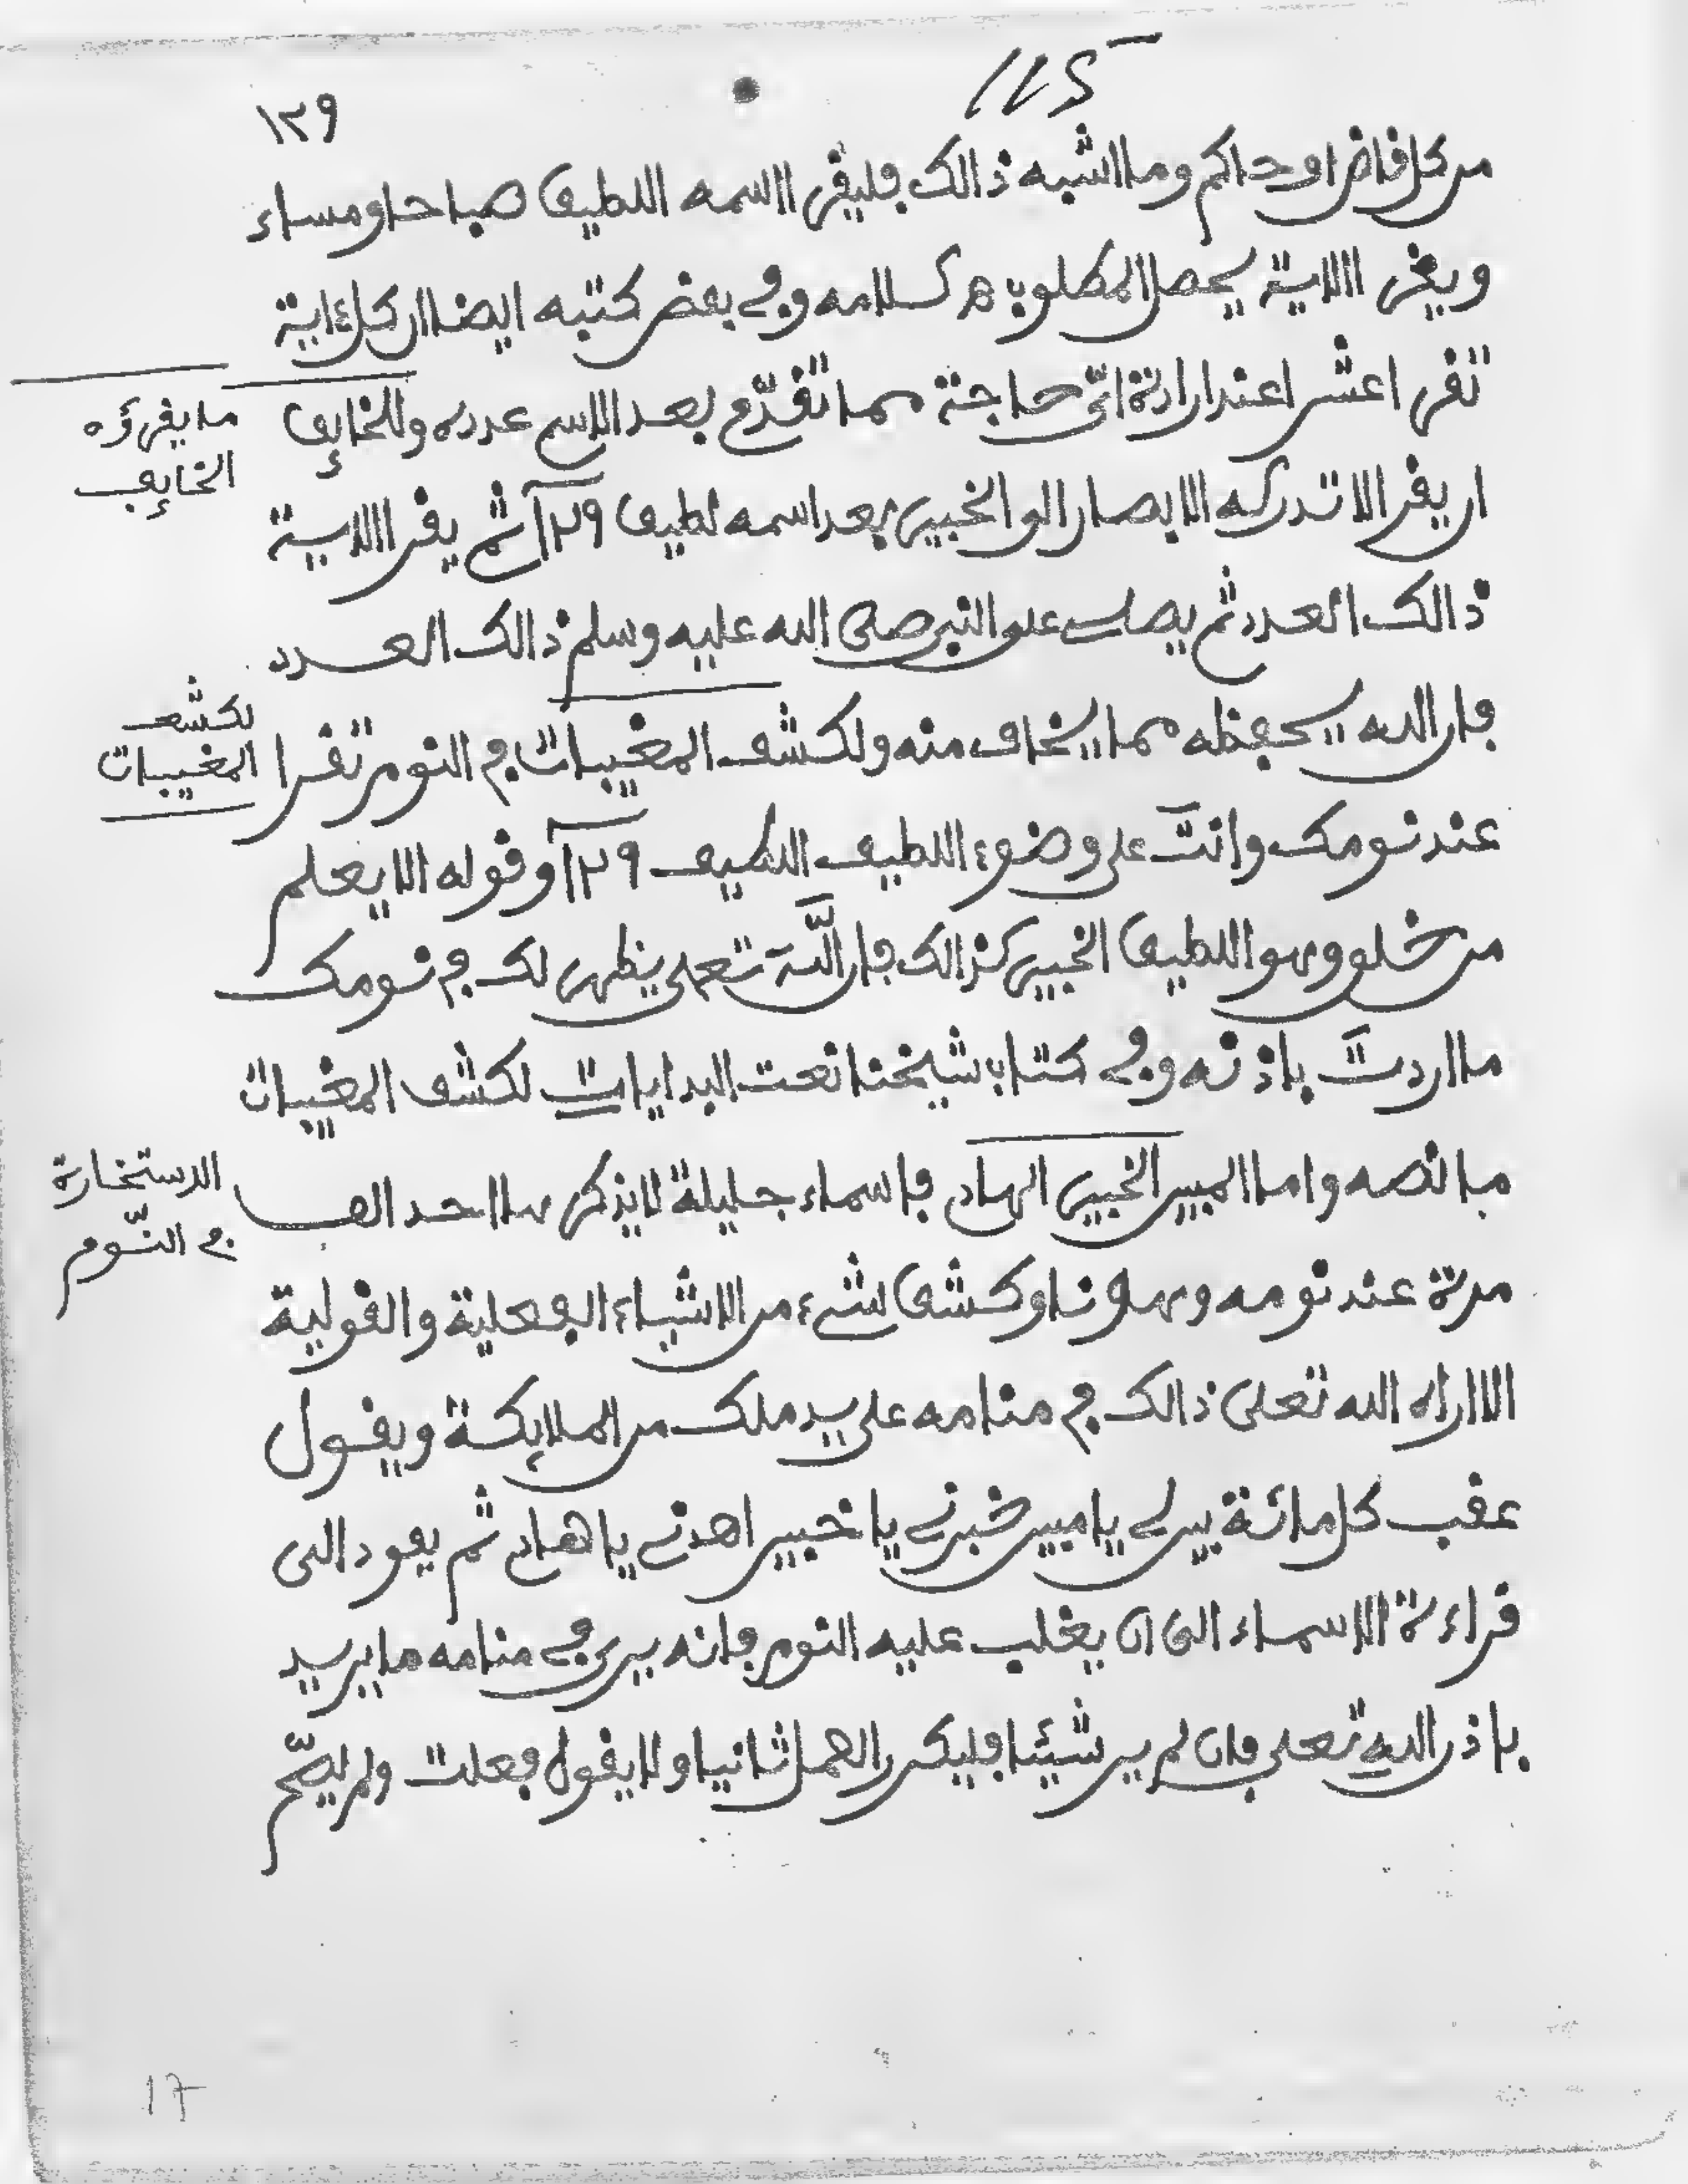 ١٢٩
من كل قاض او حاكم وما اشبه ذالك فليقرا اسمه اللطيف صباحا ومساء
ويقرا الاية يحصل المطلوب هـ كلامه وفي بعض كتبه ايضا ان كل ءاية
تقرا عشرا عند ارادة اي حاجة مما تقدّم بعد الاسم عدده وللخايف
ان يقرا لا تدركه الابصار الى الخبير بعد اسمه لطيف ١٢٩ ثم يقرا الاية
ذالك العدد ثم يصلي على النبي صلى الله عليه وسلم ذالك العدد
فان الله يحفظه مما يخاف منه ولكشف المغيبات في النوم تقرا
عند نومك وانتَ على وضوء اللطيف اللطيف ١٢٩ وقوله الا يعلم
من خلق وهو اللطيف الخبير كذالك فان اللَّه تعلى يظهر لك في نومك
ما اردتَ باذنه وفي كتاب شيخنا نعت البدايات لكشف المغيبات
ما نصه واما المبين الخبير الهادي فاسماء جليلة لا يذكرها احد الف
مرة عند نومه وهو ناو كشف شيء من الاشياء الفعلية والقولية
الا اراه الله تعلى ذالك في منامه على يد ملك من الملايكة ويقول
عقب كل مائة بين لي يا مبين خبرني يا خبير اهدني يا هادي ثم يعود الى
قراءة الاسماء الى ان يغلب عليه النوم فانه يرى في منامه ما يريد
باذن الله تعلى فان لم ير شيئا فليكرر العمل ثانيا ولا يقول فعلت ولم يصحّ
ما يقرؤه
الخايف
لكشف
المغيبات
الاستخارة
في النّوم
17